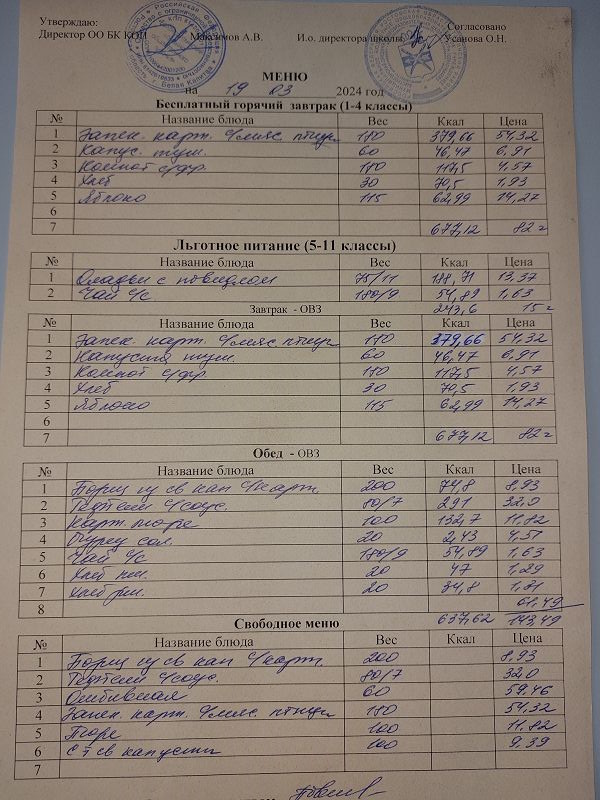 Утверждаю: Согласовано
Директор ОО БК КОП Максимов А.В. И.о. директора школы Усанова О.Н.
МЕНЮ
на 19 03 2024 год
Бесплатный горячий завтрак (1-4 классы)
№ Название блюда Вес Ккал Цена
1 Запек. карт. с/мяс. птицы 180 379,66 54,32
2 Капус. туш. 60 46,47 6,91
3 Компот с/фр. 180 117,5 4,57
4 Хлеб 30 70,5 1,93
5 Яблоко 115 62,99 14,27
6
7 677,12 82=
Льготное питание (5-11 классы)
№ Название блюда Вес Ккал Цена
1 Оладьи с повидлом 75/11 188,71 13,37
2 Чай с/с 180/9 54,89 1,63
243,6 15=
Завтрак - ОВЗ
№ Название блюда Вес Ккал Цена
1 Запек. карт. с/мяс. птицы 180 379,66 54,32
2 Капуста туш. 60 46,47 6,91
3 Компот с/фр. 180 117,5 4,57
4 Хлеб 30 70,5 1,93
5 Яблоко 115 62,99 14,27
6
7 677,12 82=
Обед - ОВЗ
№ Название блюда Вес Ккал Цена
1 Борщ из св кап с/карт. 200 74,8 8,93
2 с/соус. 80/7 291 32,0
3 Карт. пюре 100 132,7 11,82
4 Огурец сол. 20 2,43 4,51
5 Чай с/с 180/9 54,89 1,63
6 Хлеб пш. 20 47 1,29
7 Хлеб рж. 20 34,8 1,31
8 61,49
637,62 143,49
Свободное меню
№ Название блюда Вес Ккал Цена
1 Борщ из св кап с/карт. 200 8,93
2 с/соус. 80/7 32,0
3 Отбивная 60 59,46
4 Запек. карт. с/мяс. птицы 180 54,32
5 Пюре 100 11,82
6 С-т св капусты 100 9,39
7